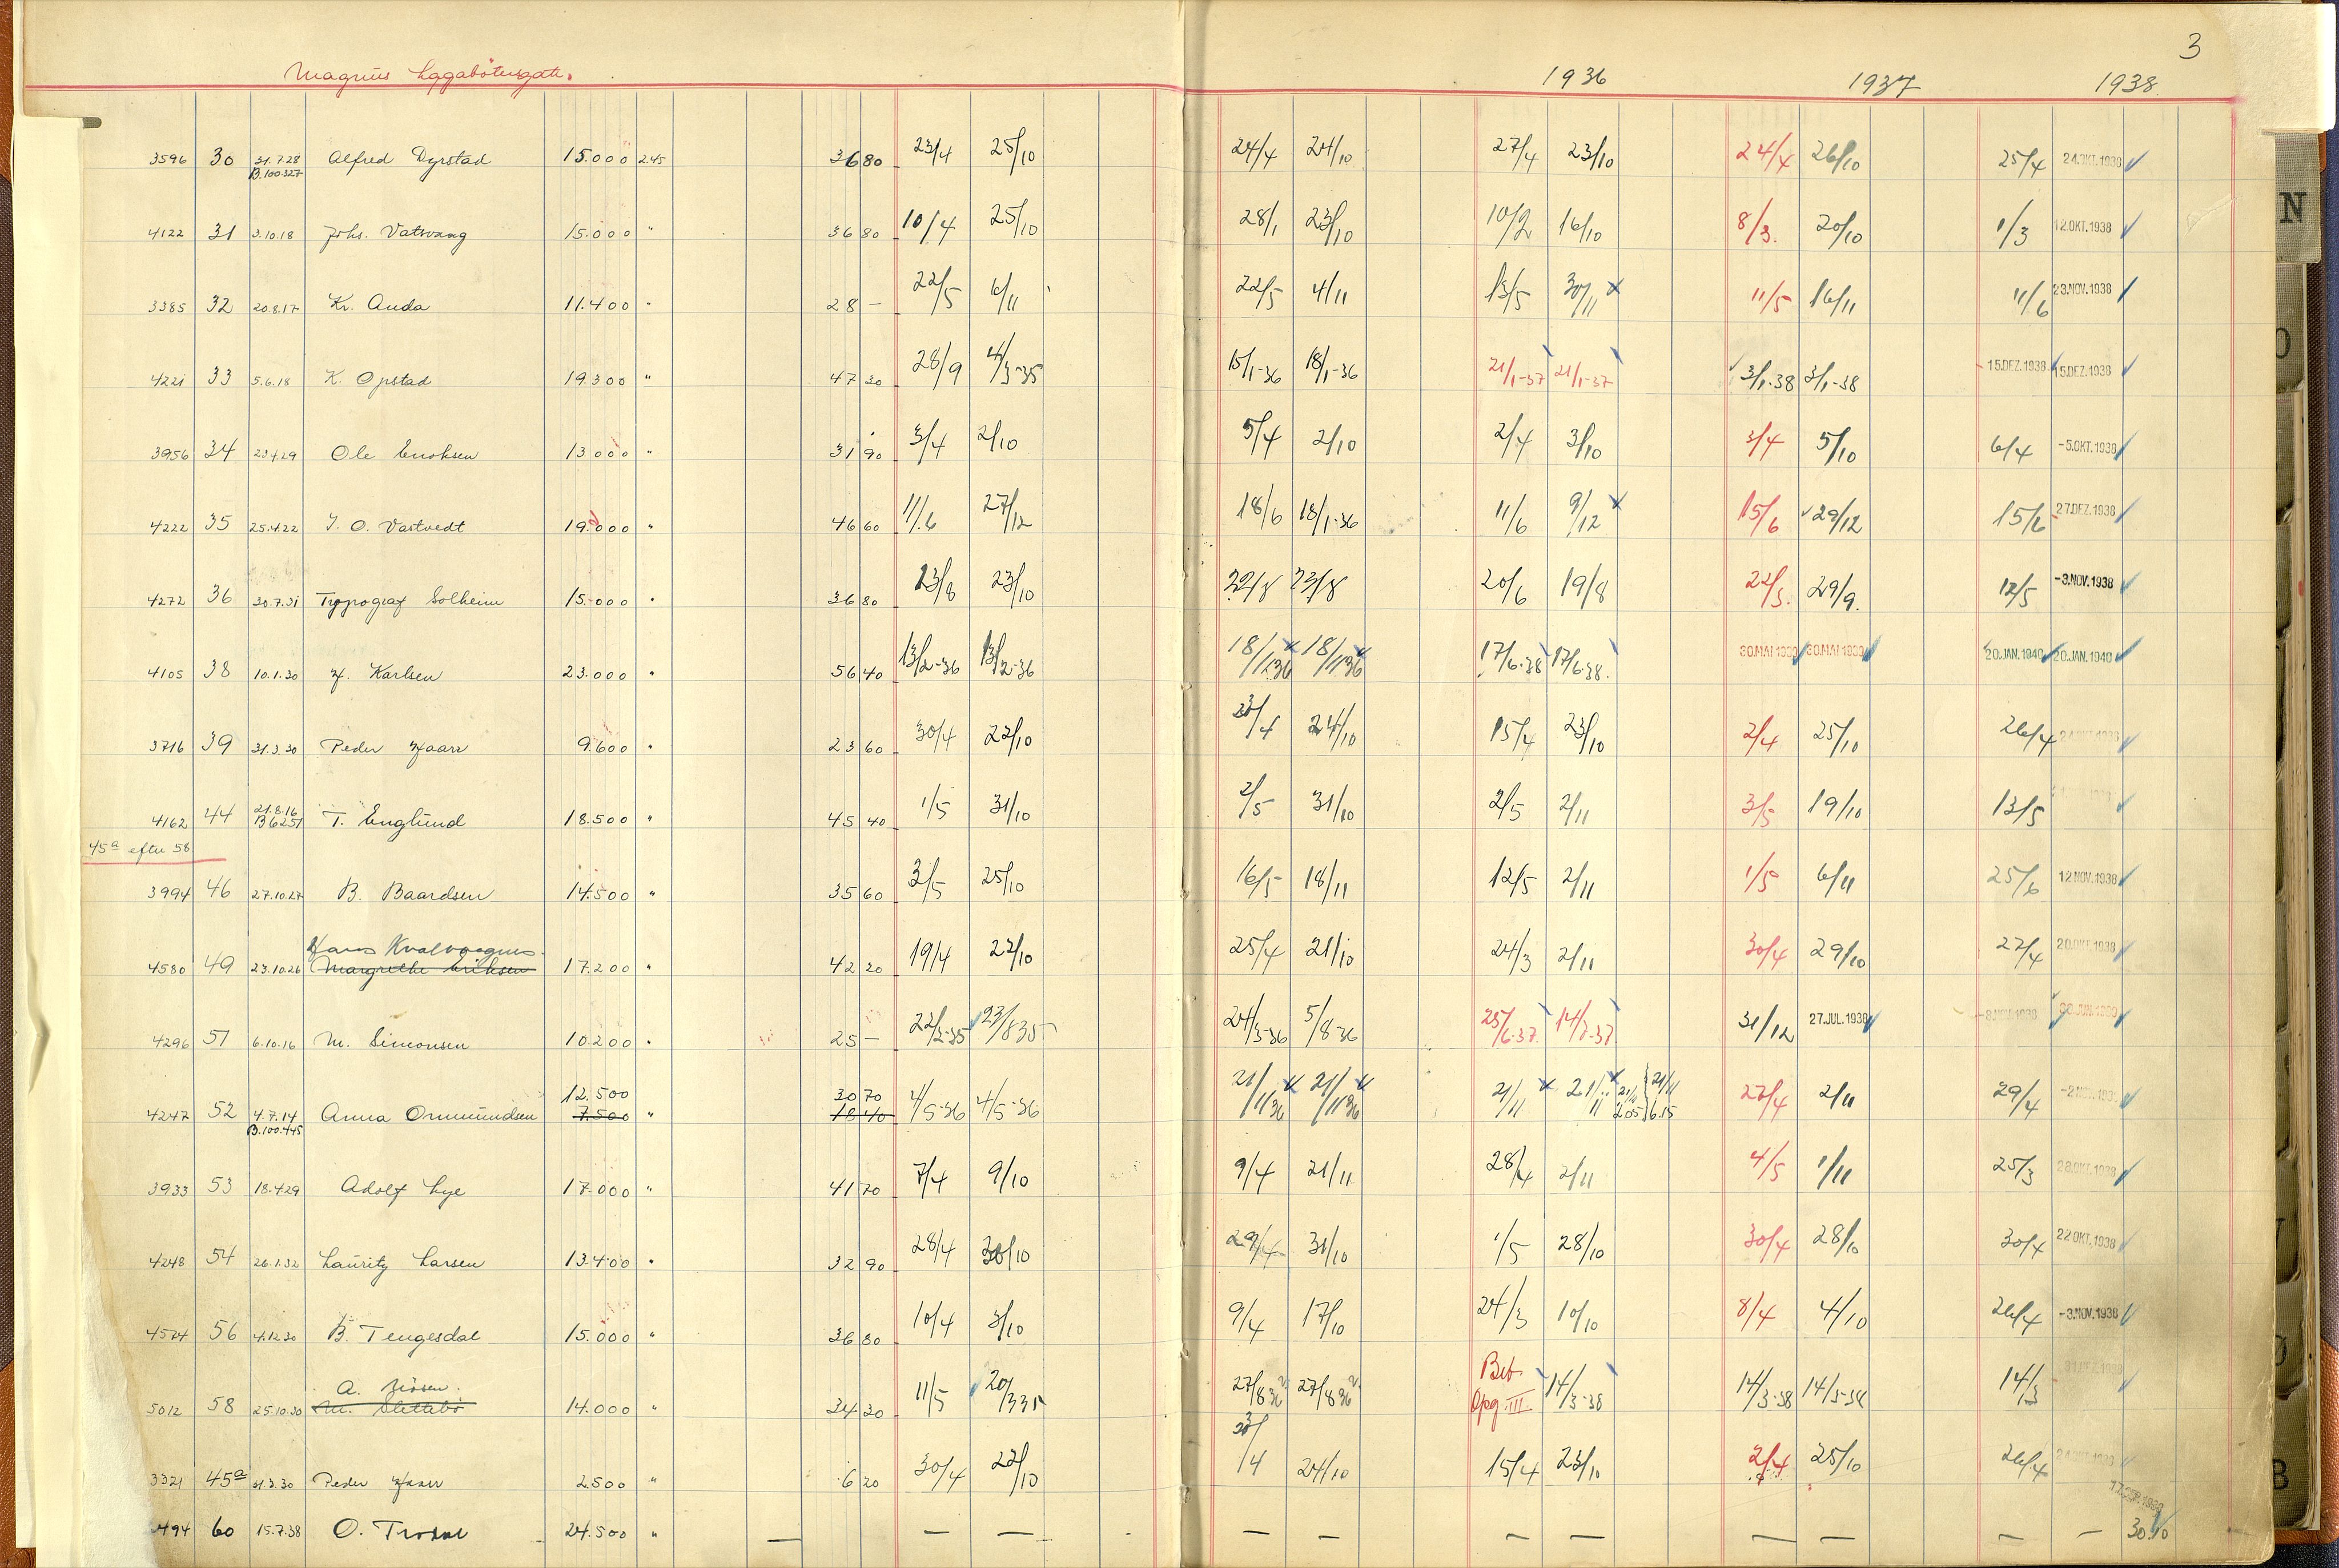 3
Magnus Lagabøtersgate.
1936 1937 1938
3596 30 31.7.28 Alfred Dyrstad 15.000 2.45 36 80 23/4 25/10 24/4 24/10 27/4 23/10 24/4 26/10 25/4 24.OKT.1938
B.100.327
4122 31 3.10.18 Johs. Vatsvaag 15.000 " 36 80 10/4 25/10 28/1 23/10 10/2 16/10 8/3. 20/10 1/3 12.OKT.1938
3385 32 20.8.17 Kr. Auda 11.400 " 28 - 22/5 6/11 22/5 4/11 13/5 30/11 x 11/5 16/11 11/6 23.NOV.1938
4221 33 5.6.18 K. Opstad 19.300 " 47 30 28/9 4/3-35 15/1-36 18/1-36 21/1-37 21/1-37 3/1-38 3/1-38 15.DEZ.1938 15.DEZ.1938
3956 34 23.4.29 Ole Enoksen 13.000 " 31 90 3/4 2/10 5/4 2/10 2/4 3/10 3/4 5/10 6/4 -5.OKT.1938
4222 35 25.4.22 T. O. Vastvedt 19.000 " 46 60 11/6 27/12 18/6 18/1-36 11/6 9/12 x 15/6 29/12 15/6 27.DEZ.1938
4272 36 30.7.31 Typograf Solheim 15.000 " 36 80 23/8 23/10 22/8 23/8 20/6 19/8 22/3. 29/9. 12/5 -3.NOV.1938
4105 38 10.1.30 H. Karlsen 23.000 " 56 40 13/2-36 13/2-36 18/11 36 18/11 36 17/6-38 17/6-38. 30.MAI 1939 30.MAI 1939 20.JAN.1940 20.JAN.1940
3716 39 31.3.30 Peder Haarr 9.600 " 23 60 30/4 22/10 23/4 24/10 15/4 23/10 2/4 25/10 26/4
4162 44 21.8.16 T. Englund 18.500 " 45 40 1/5 31/10 2/5 31/10 2/5 2/11 3/5 19/10 13/5
B 6251
45a efter 58
3994 46 27.10.27 B. Baardsen 14.500 " 35 60 3/5 25/10 16/5 18/11 12/5 2/11 1/5 6/11 25/6 12.NOV.1938
Hans Kvalvaagnes
4580 49 23.10.26 Margrethe Eriksen 17.200 " 42 20 19/4 22/10 25/4 21/10 24/3 2/11 30/4 29/10 27/4 20.OKT.1938
4296 51 6.10.16 M. Simonsen 10.200 " 25 - 22/2-35 23/8 35 24/3-36 5/8-36 25/6-37. 14/7-37 31/12 27.JUL.1938
12.500 30 70
4247 52 4.7.14 Anna Ommundsen 7.500 " 18 40 4/5-36 4/5-36 21/11 36 21/11 36 21/11 x 21/11 x 2.05 6.15 27/4 2/11 29/4
B.100.445
3933 53 18.4.29 Adolf Lye 17.000 " 41 70 7/4 9/10 9/4 21/11 28/4 2/11 4/5 1/11 25/3 28.OKT.1938
4248 54 26.1.32 Lauritz Larsen 13.400 " 32 90 28/4 30/10 29/4 31/10 1/5 28/10 30/4 28/10 30/4 22.OKT.1938
4574 56 4.12.30 B. Tengesdal 15.000 " 36 80 10/4 3/10 9/4 17/10 24/3 10/10 8/4 4/10 26/4 -3.NOV.1938
A.
5012 58 25.10.30 M. Slettebö 14.000 " 34 30 11/5 20/3 35 27/8 36 27/8 36 Bet. Opg. III 14/3-38 14/3-38 14/3-38 14/3
3321 45a 31.3.30 Peder Haarr 2.500 " 6 20 30/4 22/10 23/4 24/10 15/4 23/10 2/4 25/10 26/4
494 60 15.7.38 O. Trosdal 24.500 " — — — — — — — — — — — 30.10